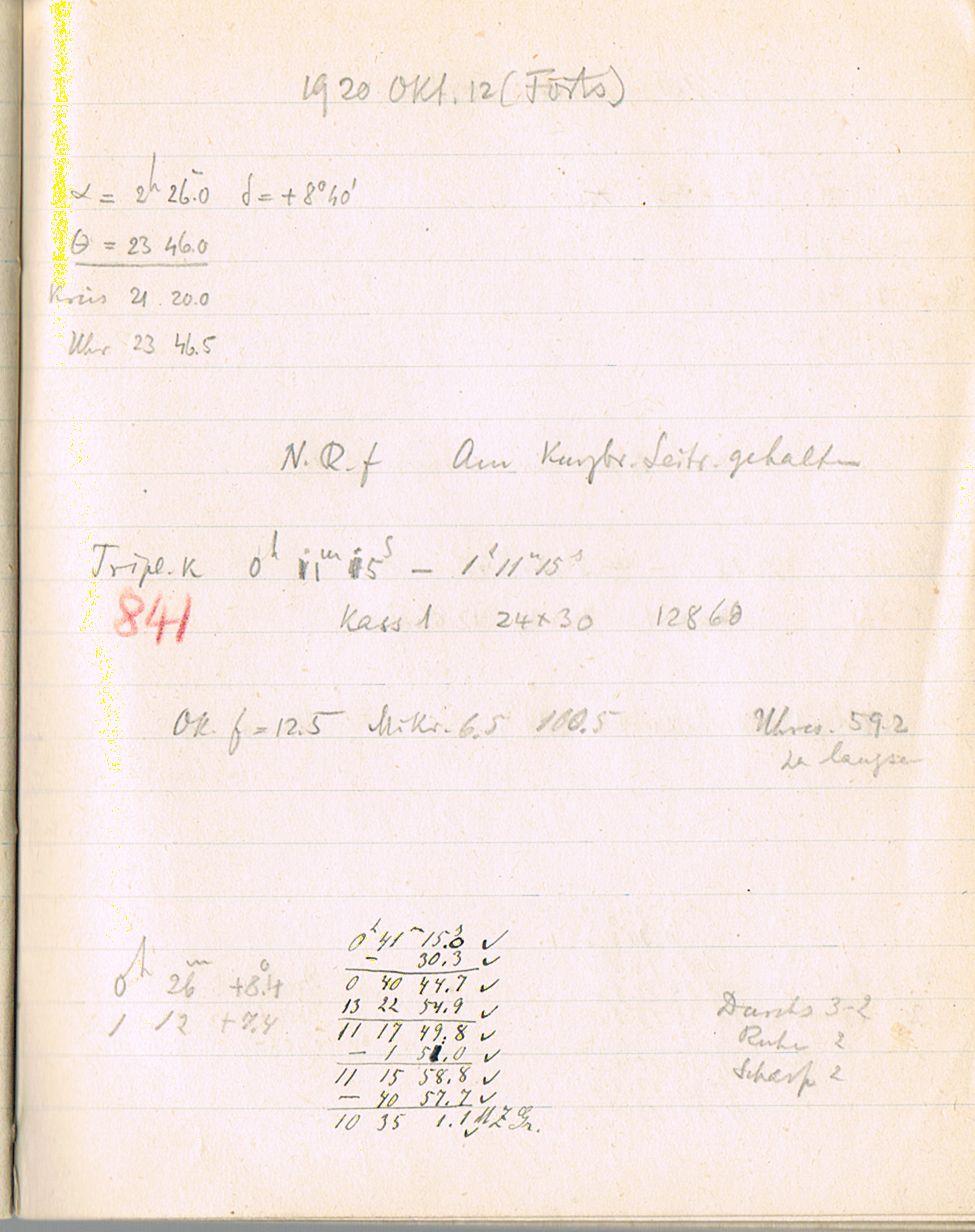 1920 Okt. 12 (Forts)
α = 2h 26m.0 δ = +8°40'
θ = 23 46.0
Kreis 21 20.0
Uhr 23 46.5
N.Q.f Am Leitr. gehalten
Tripl. K 0h 11m 15s — 1h 11m 15s
841
Kass 1 24×30 12860
Ok. f = 12.5 Mikr. 6.5 100.5 59.2
zu langsam
0h 41m 15.s0 ✓
— 30.3 ✓
0 40 44.7 ✓
13 22 54.9 ✓
11 17 49.8 ✓
— 1 51.0 ✓
11 15 58.8 ✓
— 40 57.7 ✓
10 35 1.1 MZ Gr. ✓
0h 26m +8°.4
1 12 +7.4
Durchs 3-2
Ruhe 2
Schärfe 2